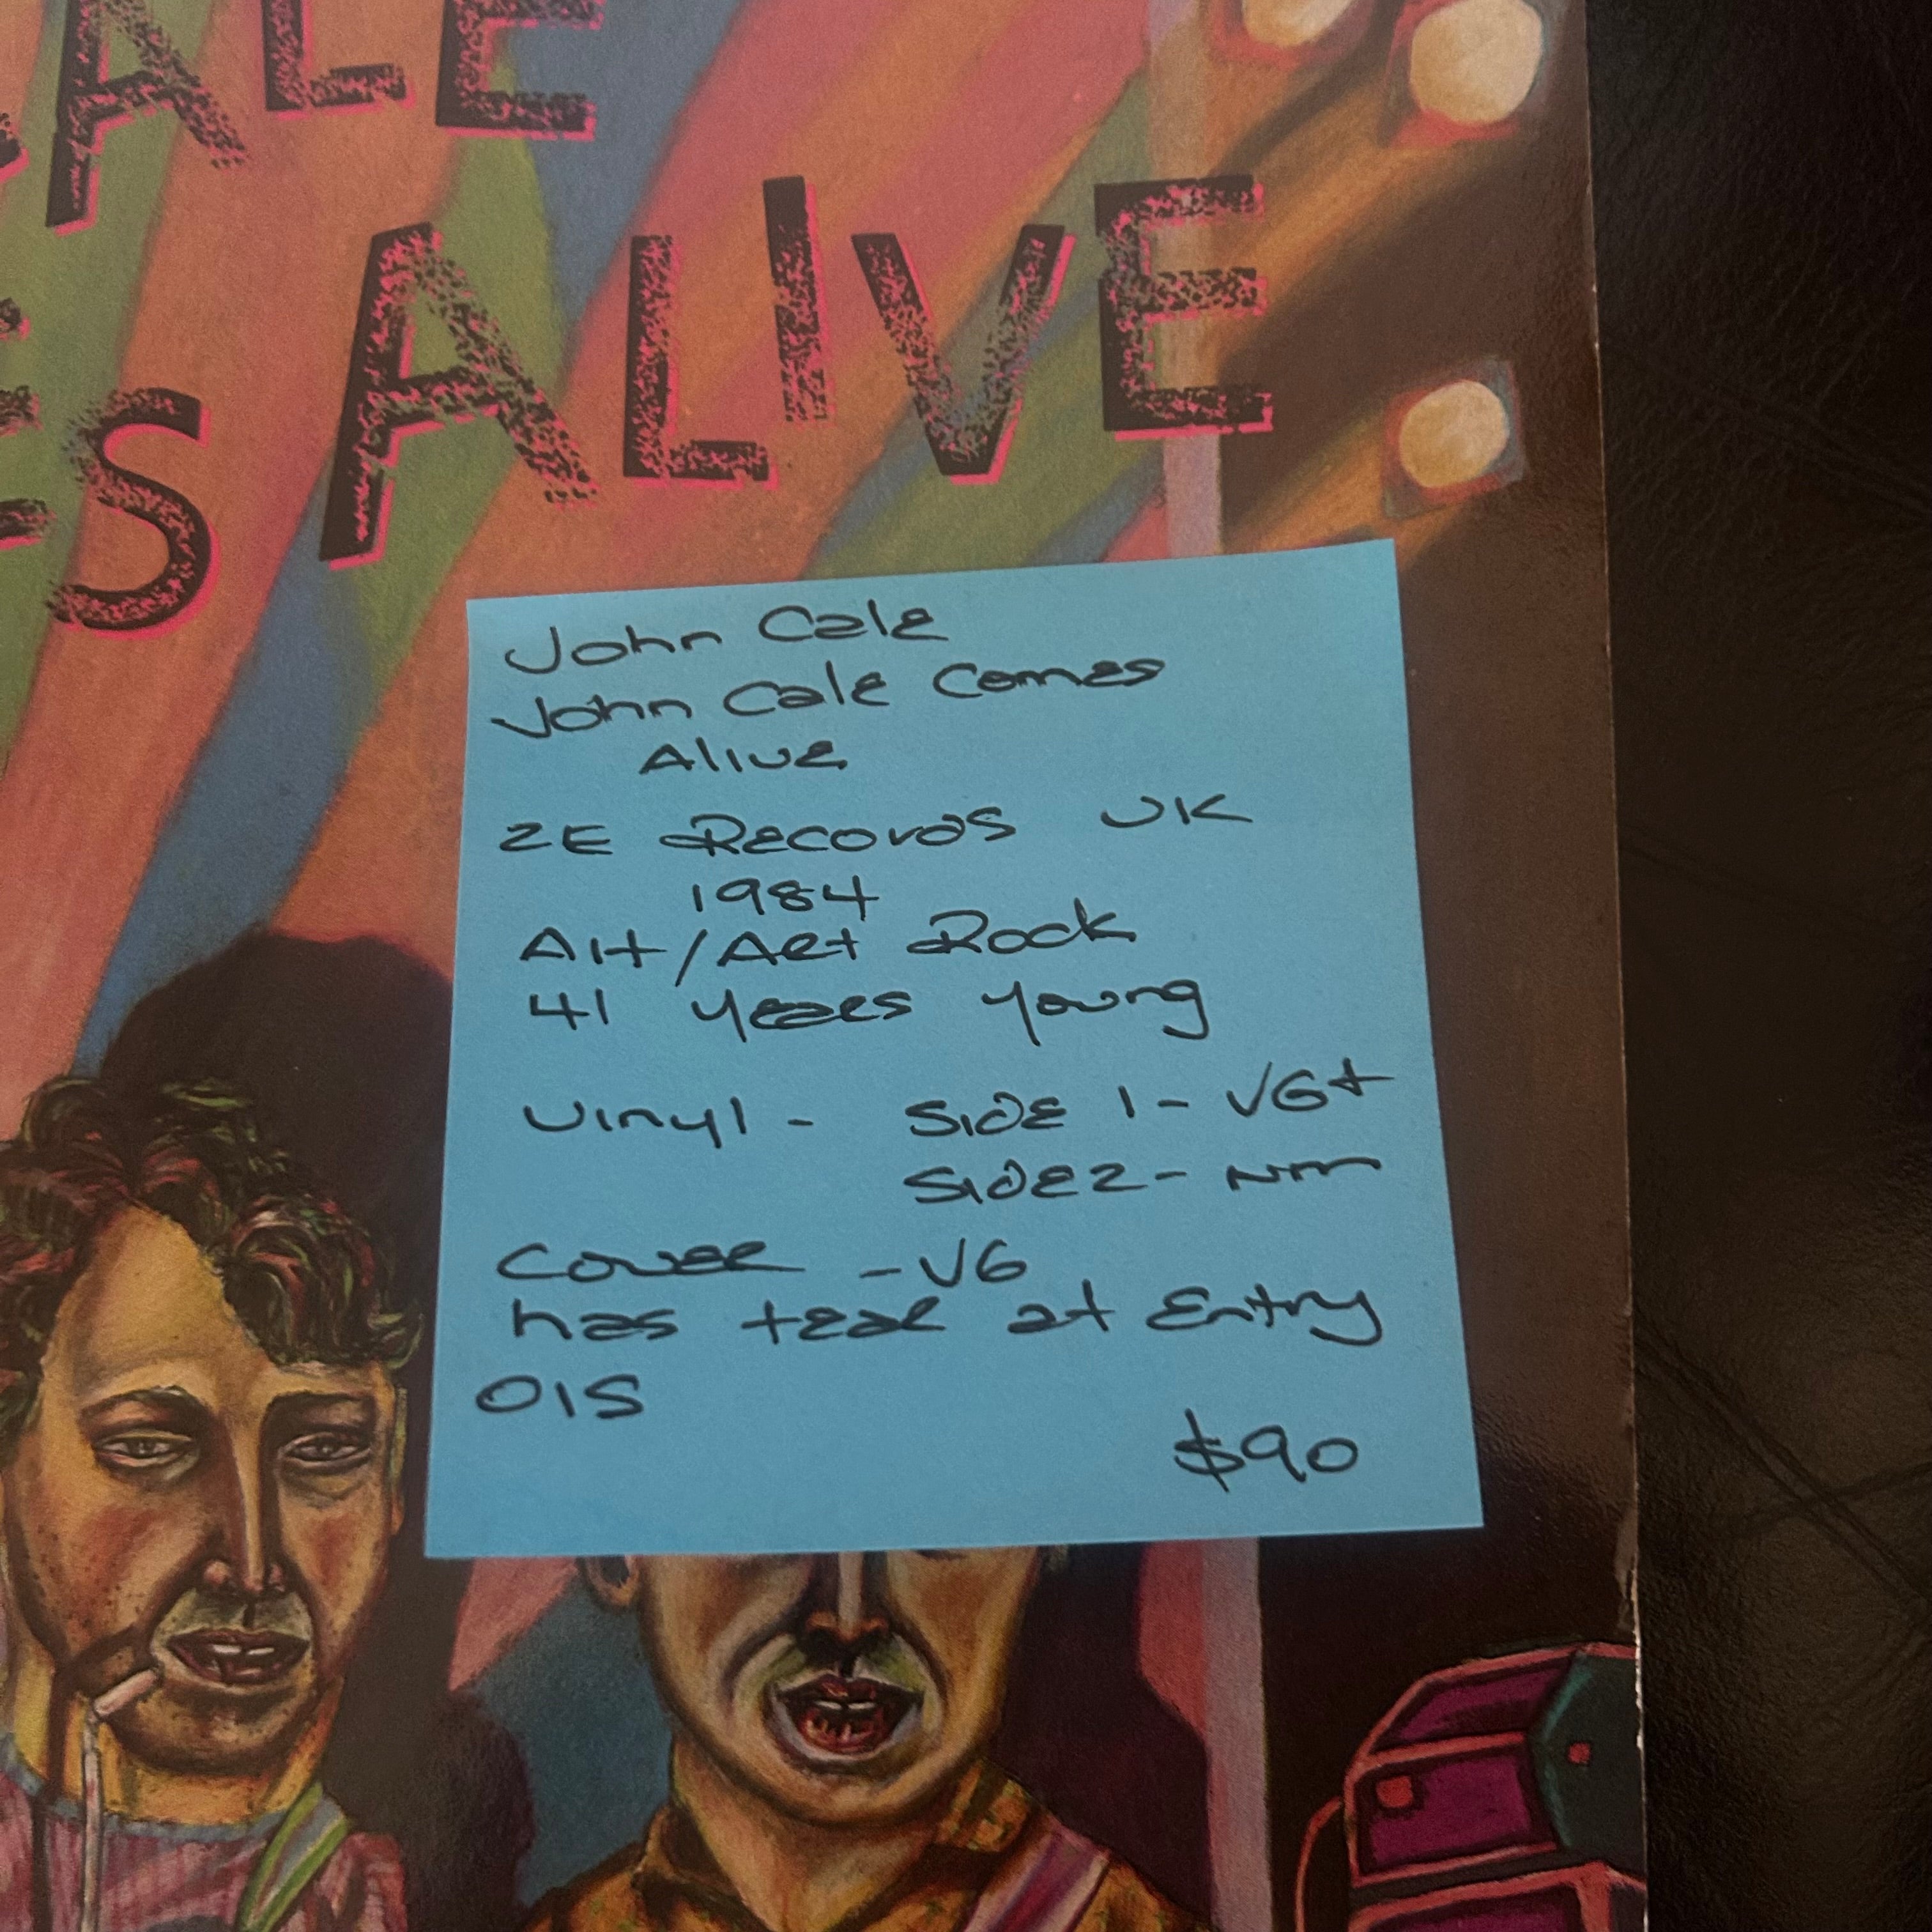 ALE
ES ALIVE
John Cale
John Cale Comes
Alive
ZE Records UK
1984
Alt/Art Rock
41 years young
Vinyl - Side 1 - VG+
Side 2 - NM
Cover - VG
has tear at Entry
OIS
$90